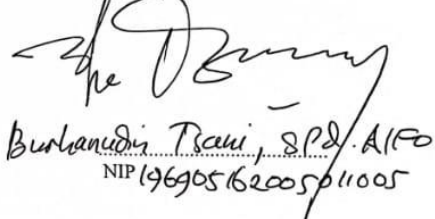 Burhanudin Tsani, SPd. AIFO
NIP 196905162005011005